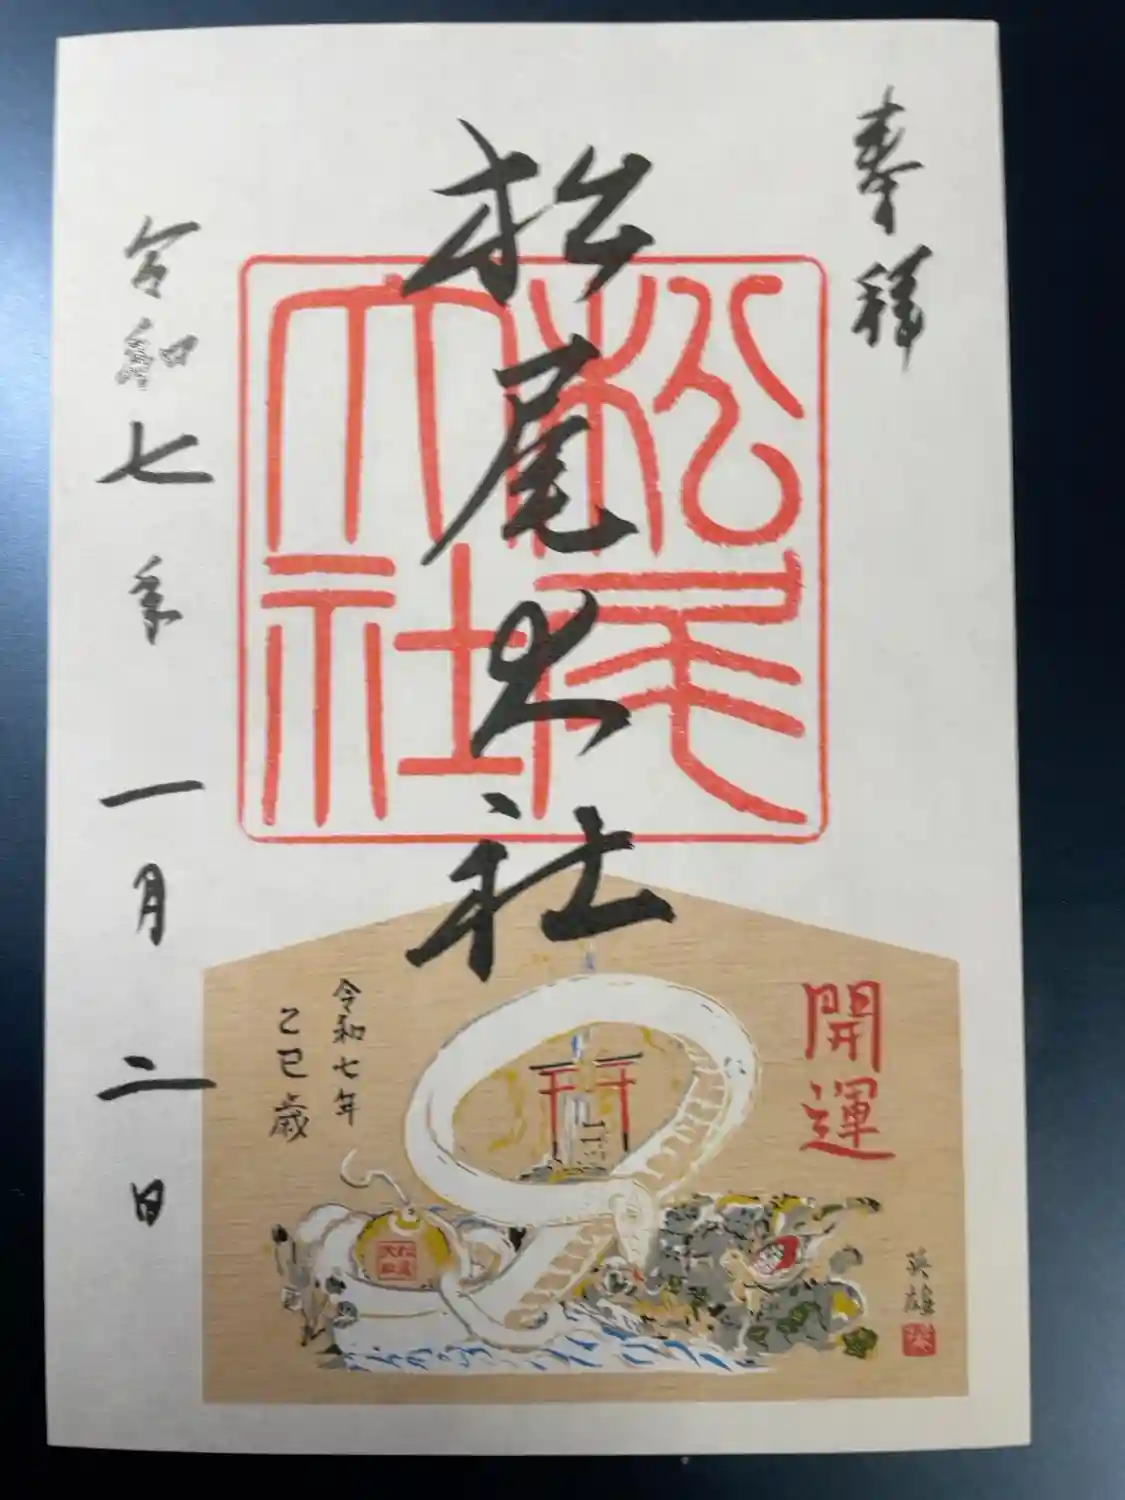 奉拝
松尾大社
松尾大社
令和七年一月二日
開運
令和七年
乙巳歳
英雄
松尾大社